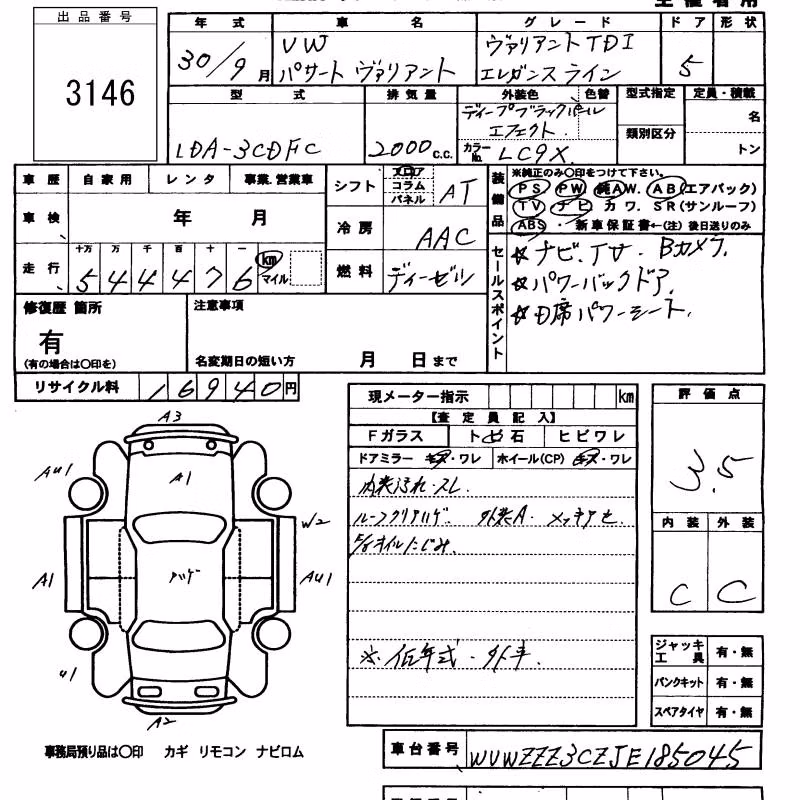 出品番号
3146
年式 車名 グレード ドア 形状
30/9月 VW パサート ヴァリアント ヴァリアントTDI エレガンスライン 5
型式 排気量 外装色 色替 型式指定 定員・積載
LDA-3CDFC 2000 c.c. ディープブラックパール エフェクト カラーNo. LC9X 類別区分 名 トン
車歴 自家用 レンタ 事業.営業車
車検 年 月
走行 十万 万 千 百 十 一
544476 km マイル
シフト フロア コラム パネル AT
冷房 AAC
燃料 ディーゼル
装備品 ※純正のみ〇印をつけて下さい。
PS PW 純AW. AB(エアバック)
TV ナビ カワ. SR(サンルーフ)
ABS ・ 新車保証書←(注)後日送りのみ
セールスポイント
☆ナビ.TV. Bカメラ.
☆パワーバックドア.
☆D席パワーシート.
修復歴 箇所
有
(有の場合は〇印を)
注意事項
名変期日の短い方 月 日まで
リサイクル料 16940円
現メーター指示 km
【査定員記入】
Fガラス トビ石 ヒビワレ
ドアミラー キズ・ワレ ホイール(CP) キズ・ワレ
内装汚れ.スレ.
ルーフクリアハゲ. 外装A. メッキアセ.
E/gオイルにじみ.
※.低年式.外車.
評価点
3.5
内装 外装
C C
ジャッキ工具 有・無
パンクキット 有・無
スペアタイヤ 有・無
A3
AU1 A1
W2
A1 ハゲ AU1
U1
A2
事務局預り品は〇印 カギ リモコン ナビロム
車台番号 WVWZZZ3CZJE185045